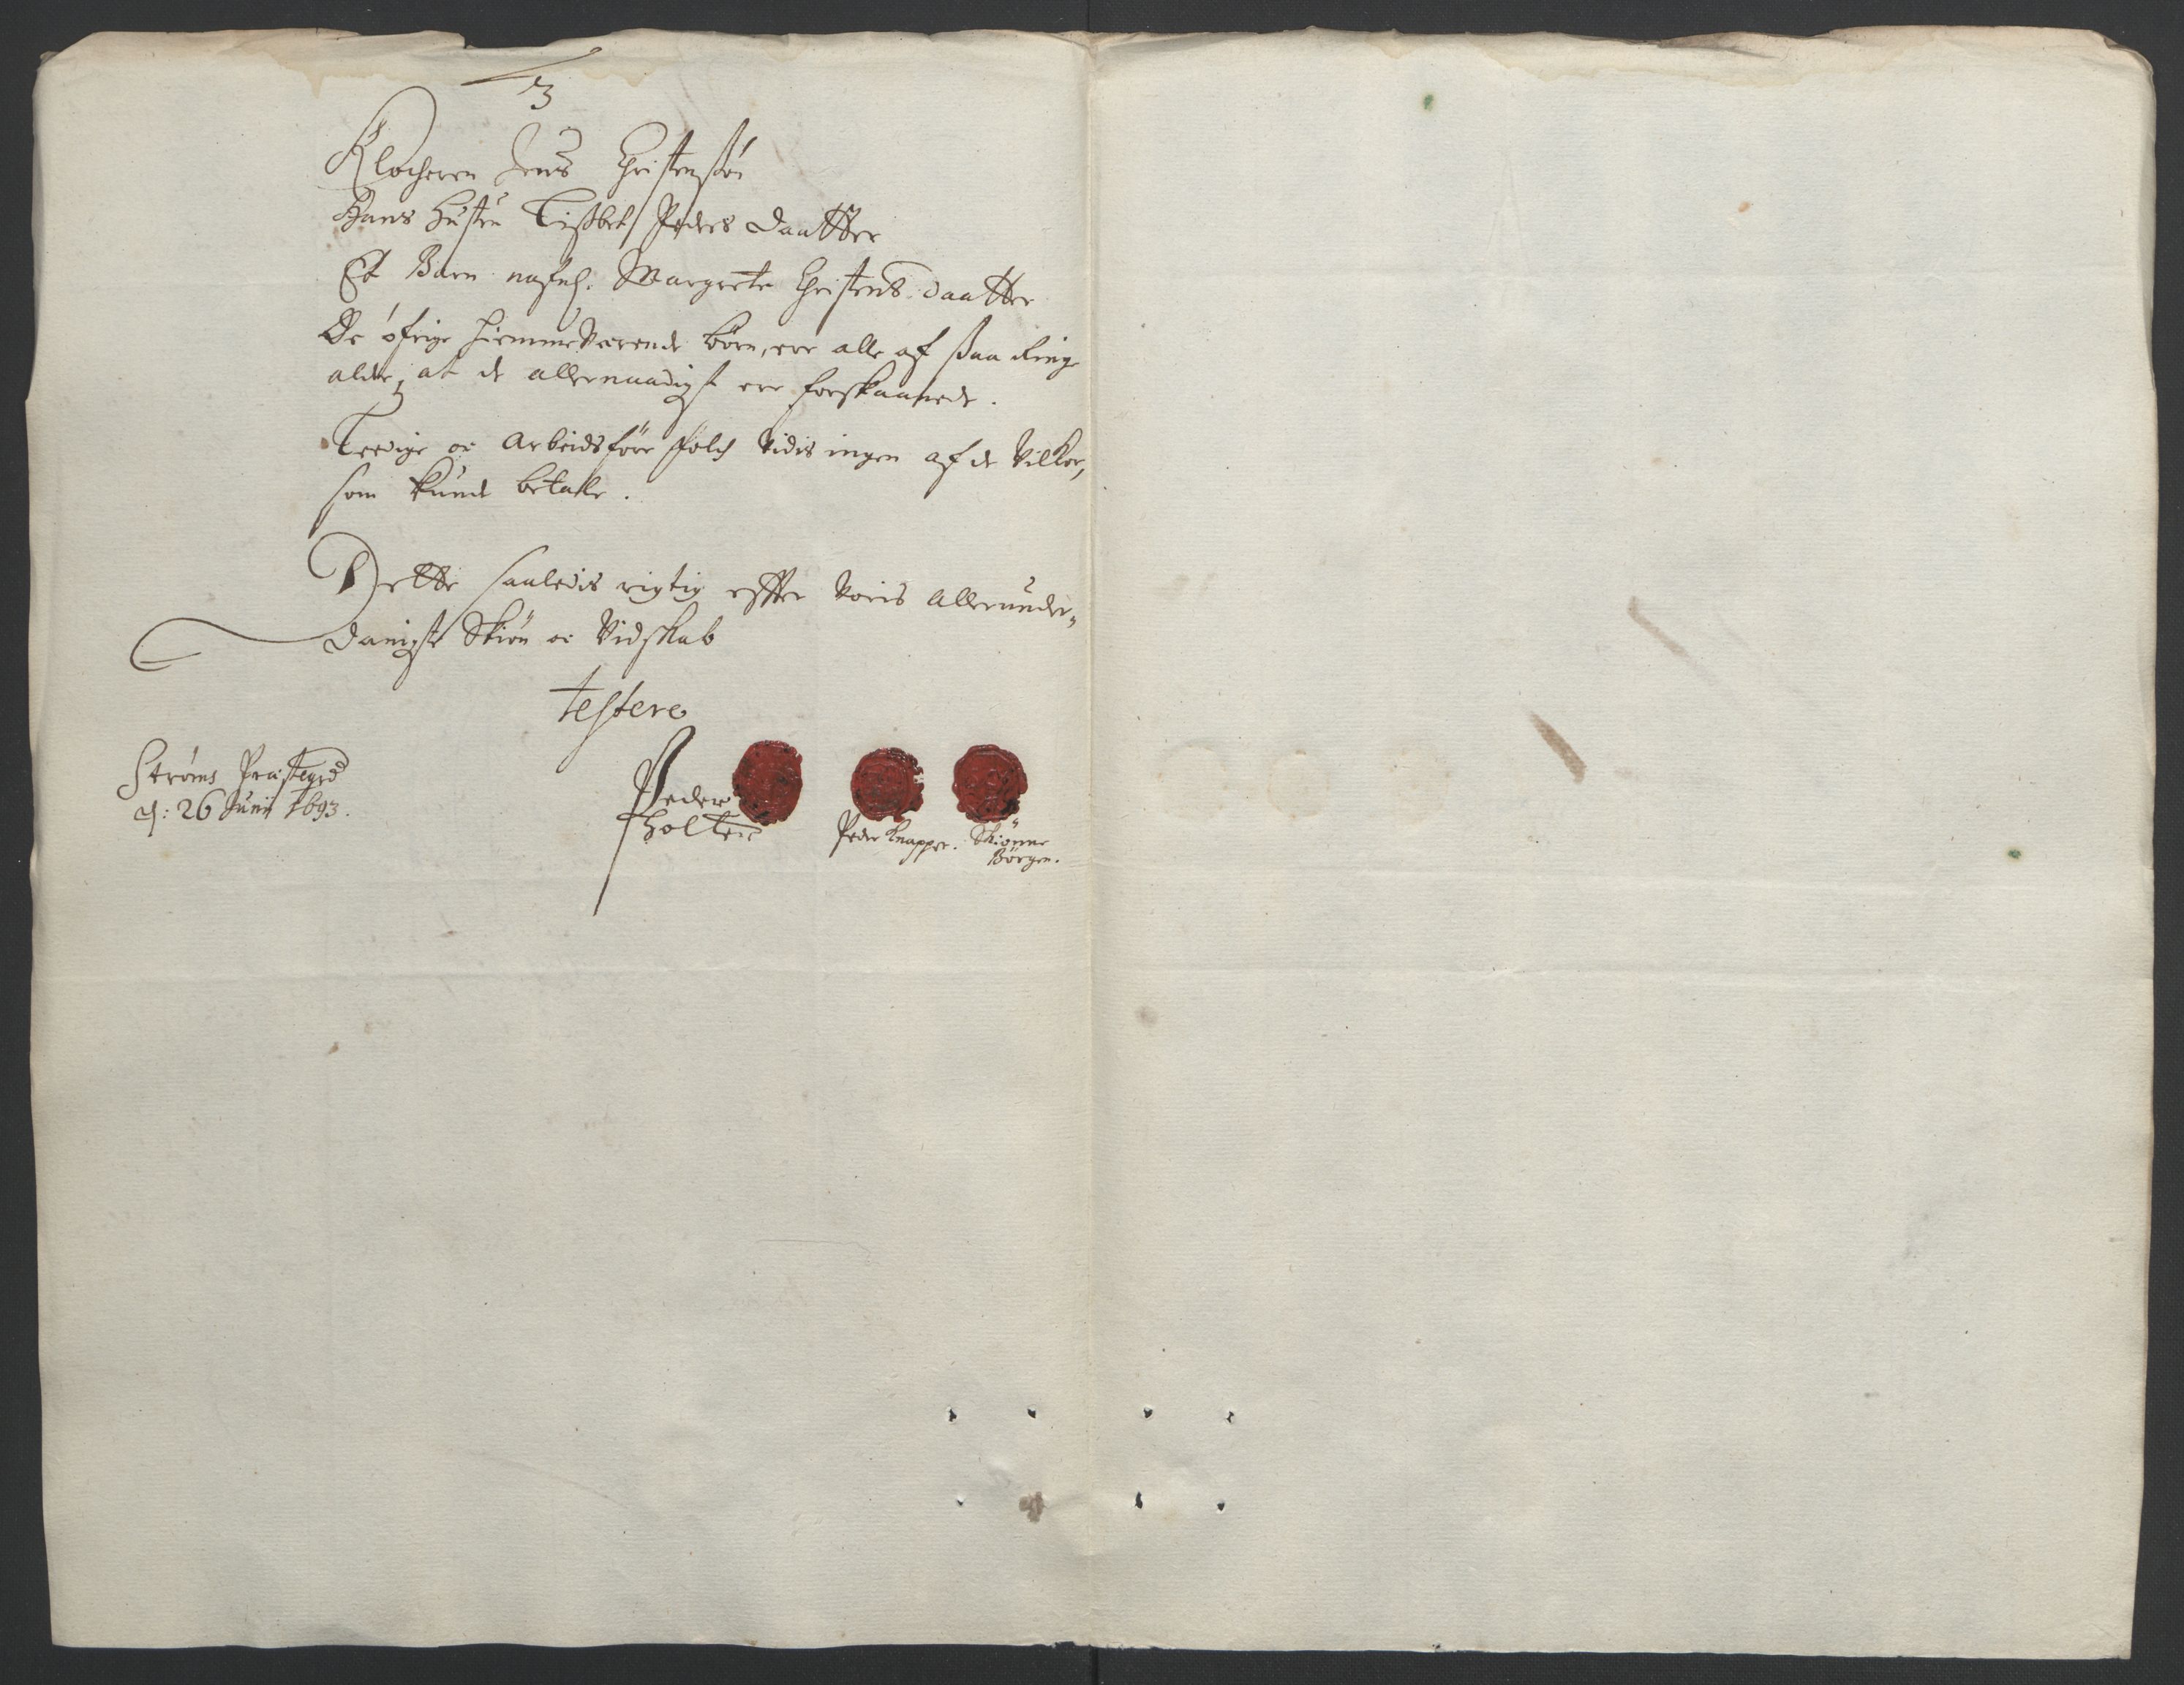 3
Klocheren Jens Christensön
Hans Hustru Lisbet Peders Daatter
Et Barn nafnl. Margrete Christens daatter
De öfrige hiemmeværende börn, ere alle af saa ringe
alder, at de allernaadigst ere forskaanede.
Leedige oc Arbeidsföre folch vides ingen af de Vilkor,
som kunde betahle.
Dette saaledis rigtig effter Voris Allerunder„
danigste Skiön oc Vidskab
testere
Ströms Præstegrd
d: 26 Junij 1693.
Peder
Holter
Peder Knapper.
Skiönne
Börgen.